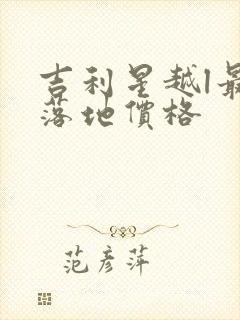 吉利星越l最
落地價格
范彦萍